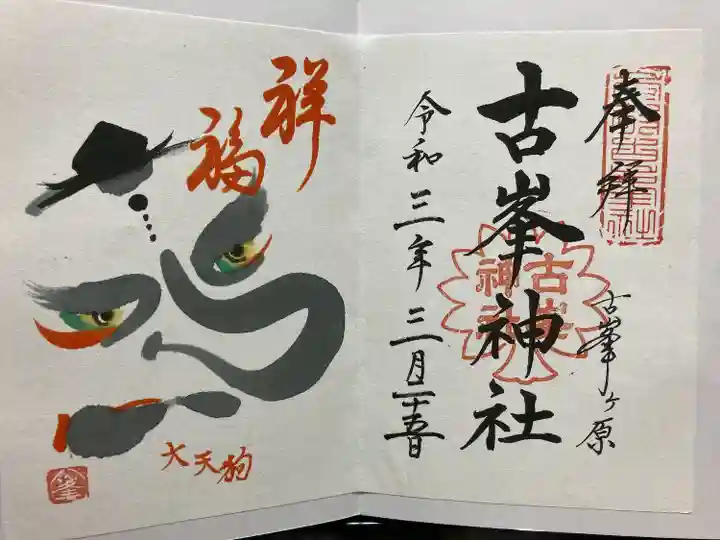 奉拝
古峯ヶ原
古峯神社
古峯神社
令和三年三月二十五日
祥福
大天狗